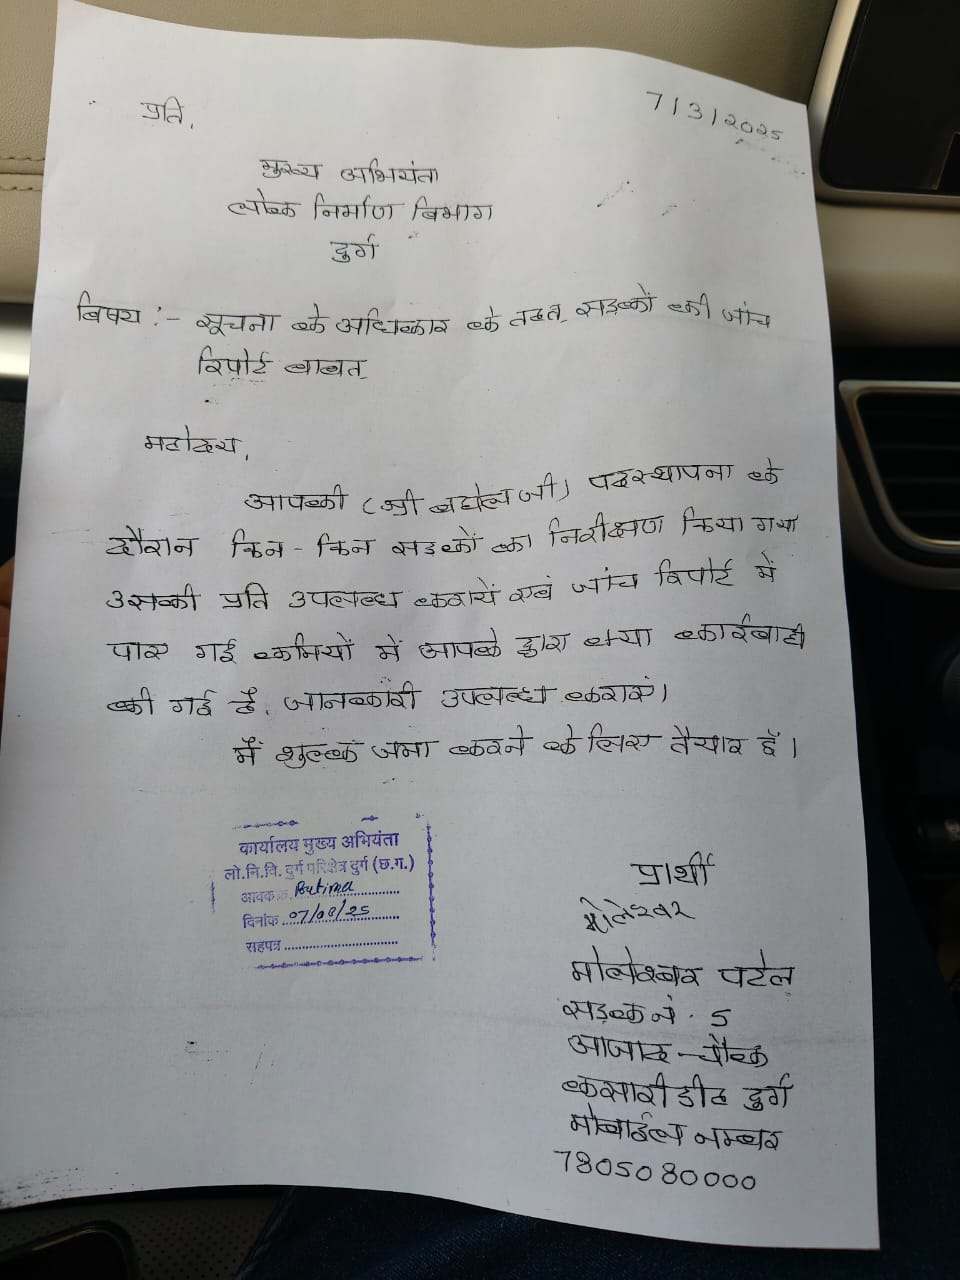 7/3/2025
प्रति,
मुख्य अभियंता
लोक निर्माण विभाग
दुर्ग
विषय :- सूचना के अधिकार के तहत सड़कों की जांच
रिपोर्ट बाबत्
महोदय,
आपकी (श्री बघेल जी) पदस्थापना के
दौरान किन-किन सड़कों का निरीक्षण किया गया
उसकी प्रति उपलब्ध करायें एवं जांच रिपोर्ट में
पाए गई कमियों में आपके द्वारा क्या कार्रईवाही
की गई है, जानकारी उपलब्ध कराएं।
मैं शुल्क जमा करने के लिए तैयार हूँ।
कार्यालय मुख्य अभियंता
लो.नि.वि. दुर्ग परिक्षेत्र दुर्ग (छ.ग.)
आवक क्र.
दिनांक 07/08/25
सहपत्र
प्रार्थी
भोलेश्वर
भोलेश्वर पटेल
सड़क नं. 5
आजाद-चौक
कसारीडीह दुर्ग
मोबाईल नम्बर
7805080000